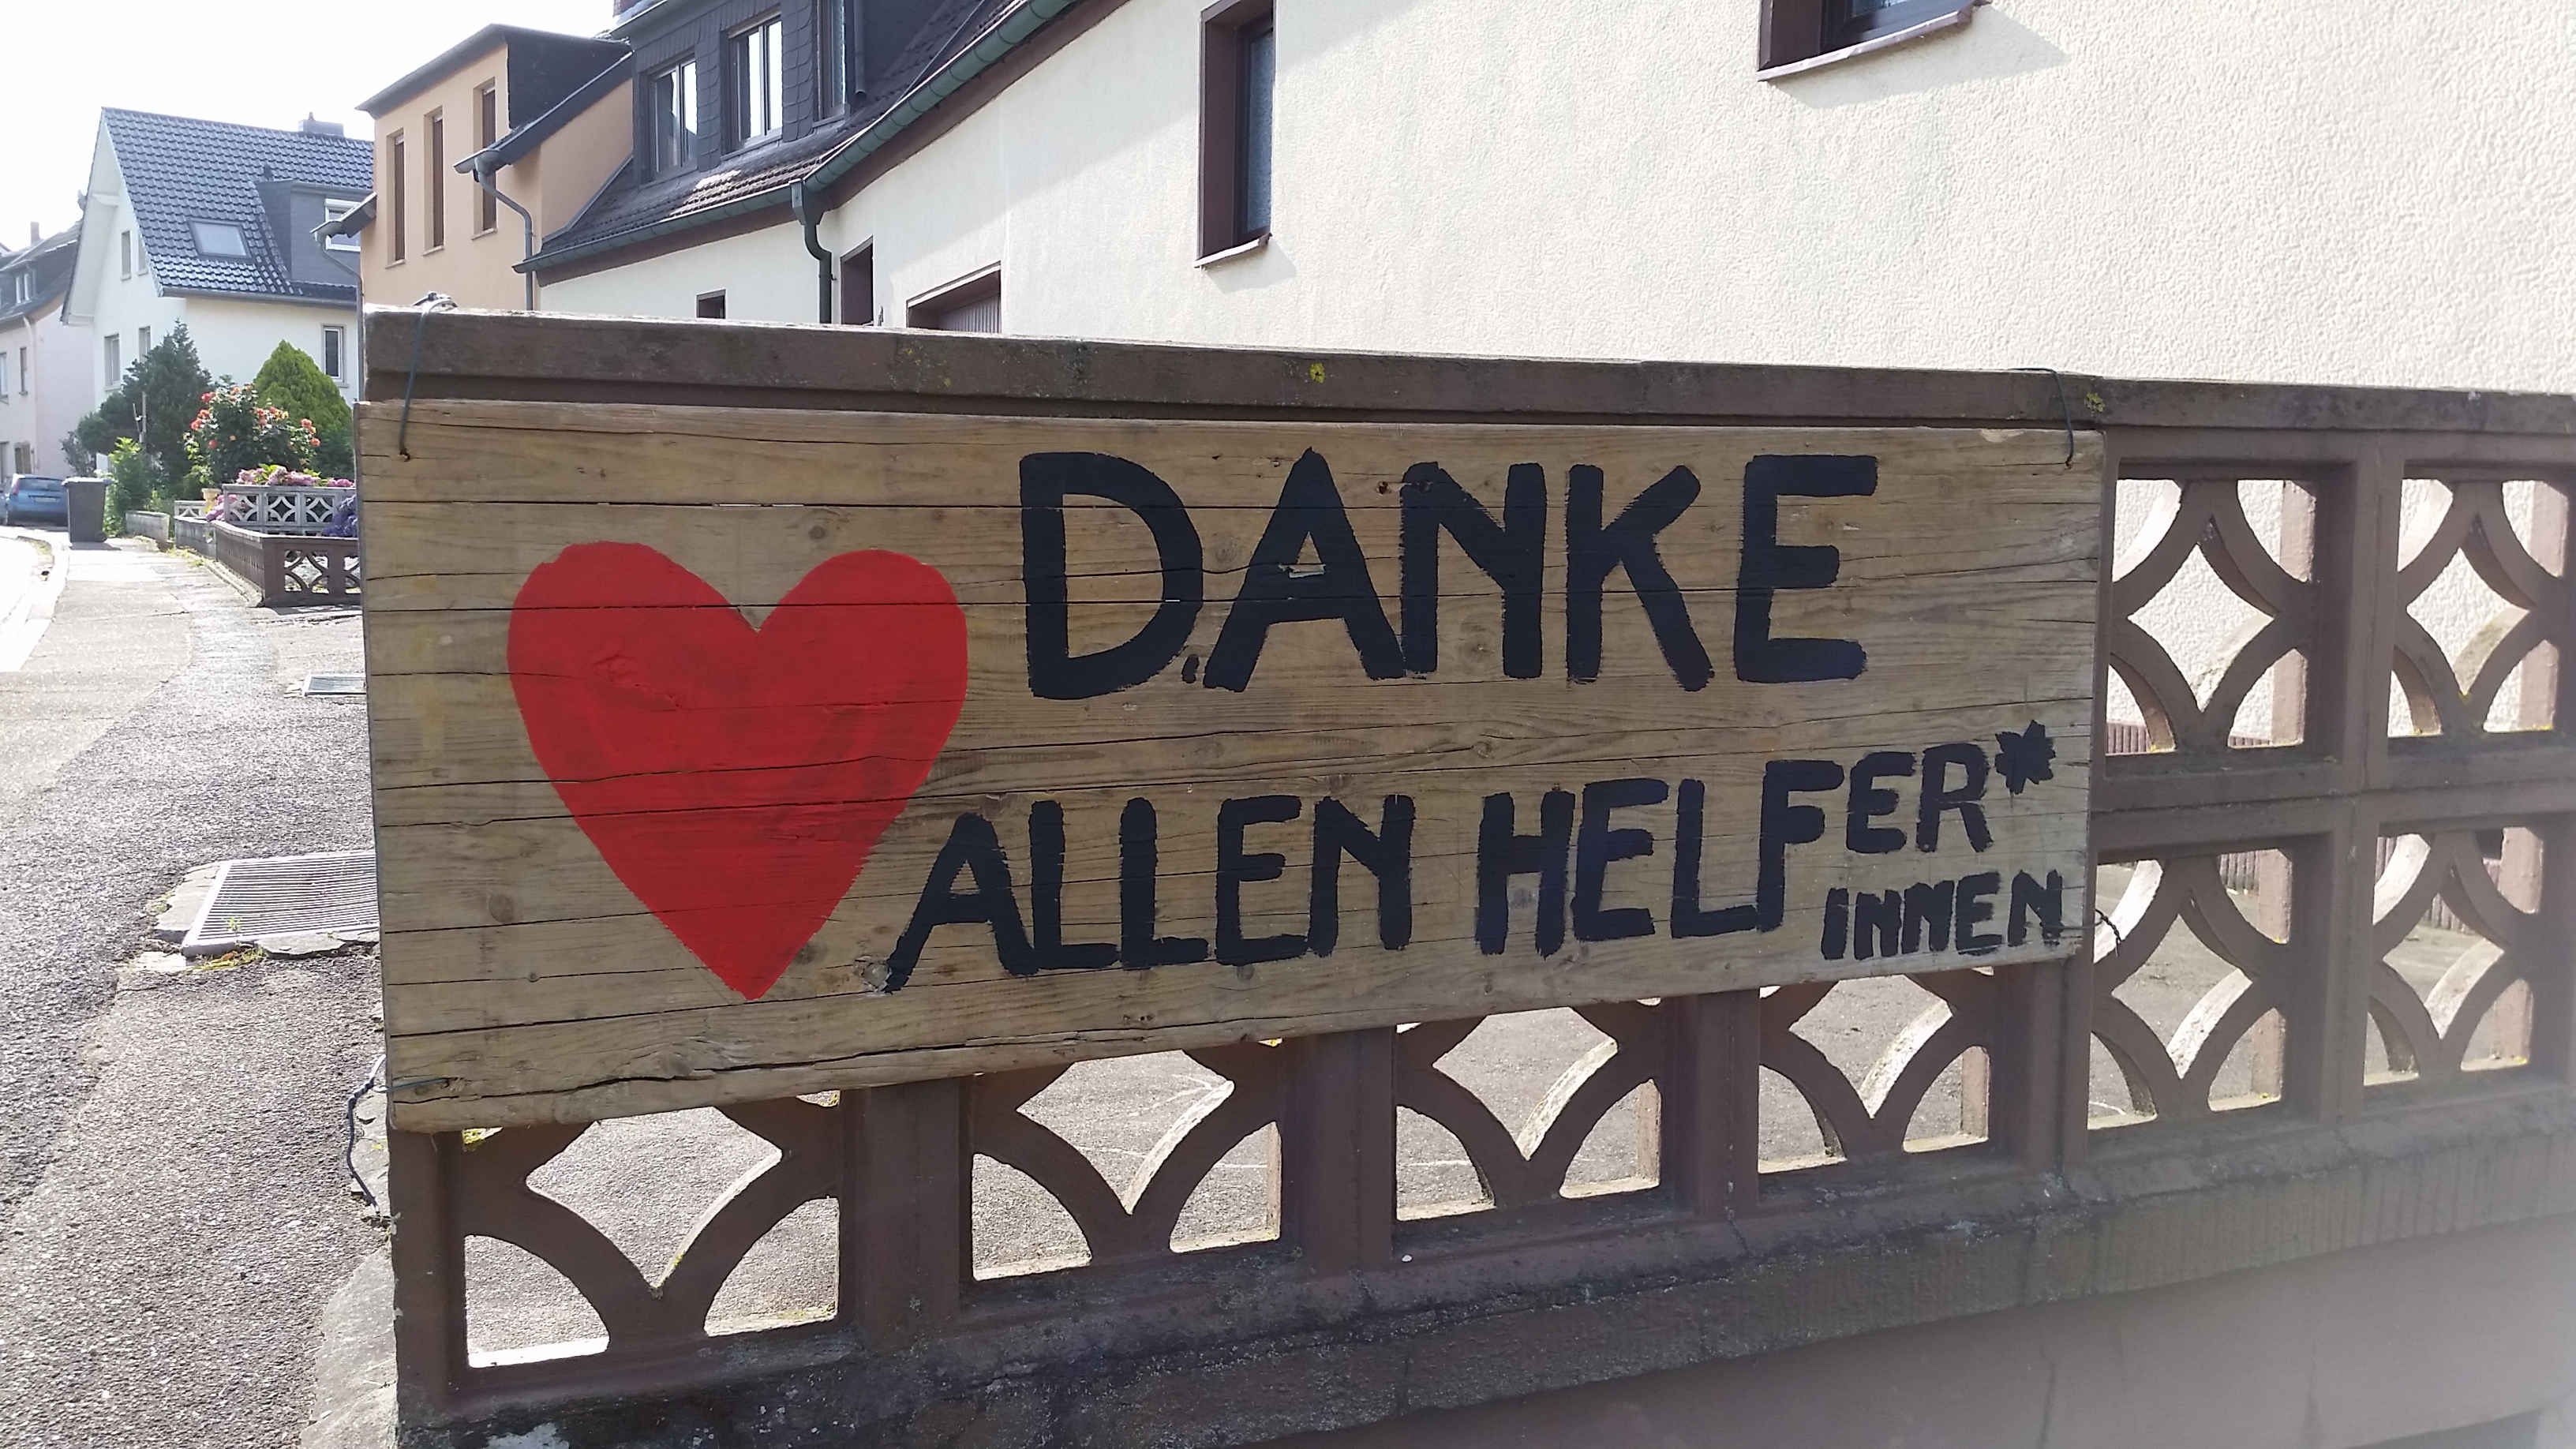 DANKE
ALLEN HELFER*
INNEN